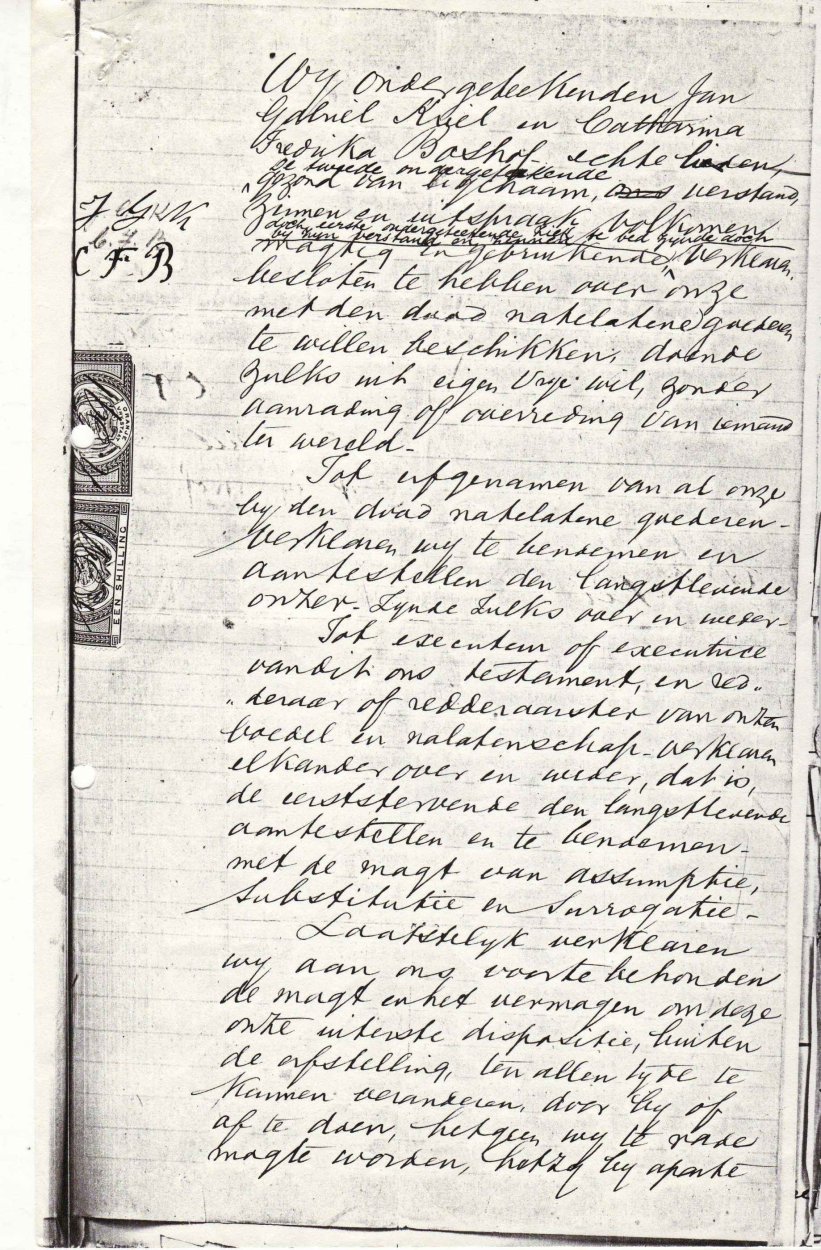 Wy, ondergeteekenden Jan
Gabriel Kriel en Catharina
Fredrika Boshof, echte lieden,
de tweede ondergetekende
gezond van lichaam, ons verstand,
zinnen en uitspraak volkomen
doch eerste ondergeteekende ziek te bed zynde doch
by zyn verstand en zinnen
magtig en gebruikende, verklaren
besloten te hebben over onze
met den dood natelatene goederen
te willen beschikken, doende
zulks uit eigen vrye wil, zonder
aanrading of overreding van iemand
ter wereld.
Tot erfgenamen van al onze
by den dood natelatene goederen
verklaren wy te benoemen en
aantestellen den langstlevende
onzer. Zynde zulks over en weder.
Tot executeur of executrice
van dit ons testament, en red„
„deraar of redderaarster van onzen
boedel en nalatenschap verklaren
elkander over en weder, dat is,
de eerststervende den langstlevende
aantestellen en te benoemen
met de magt van assumptie,
substitutie en surrogatie.
Laatstelyk verklaren
wy aan ons voortebehouden
de magt en het vermogen om deze
onze uiterste dispositie, buiten
de erfstelling, ten allen tyde te
kunnen veranderen, daar by of
af te doen, hetgeen wy te rade
mogte worden, hetzy by aparte
J G K
C F B
EEN SHILLING